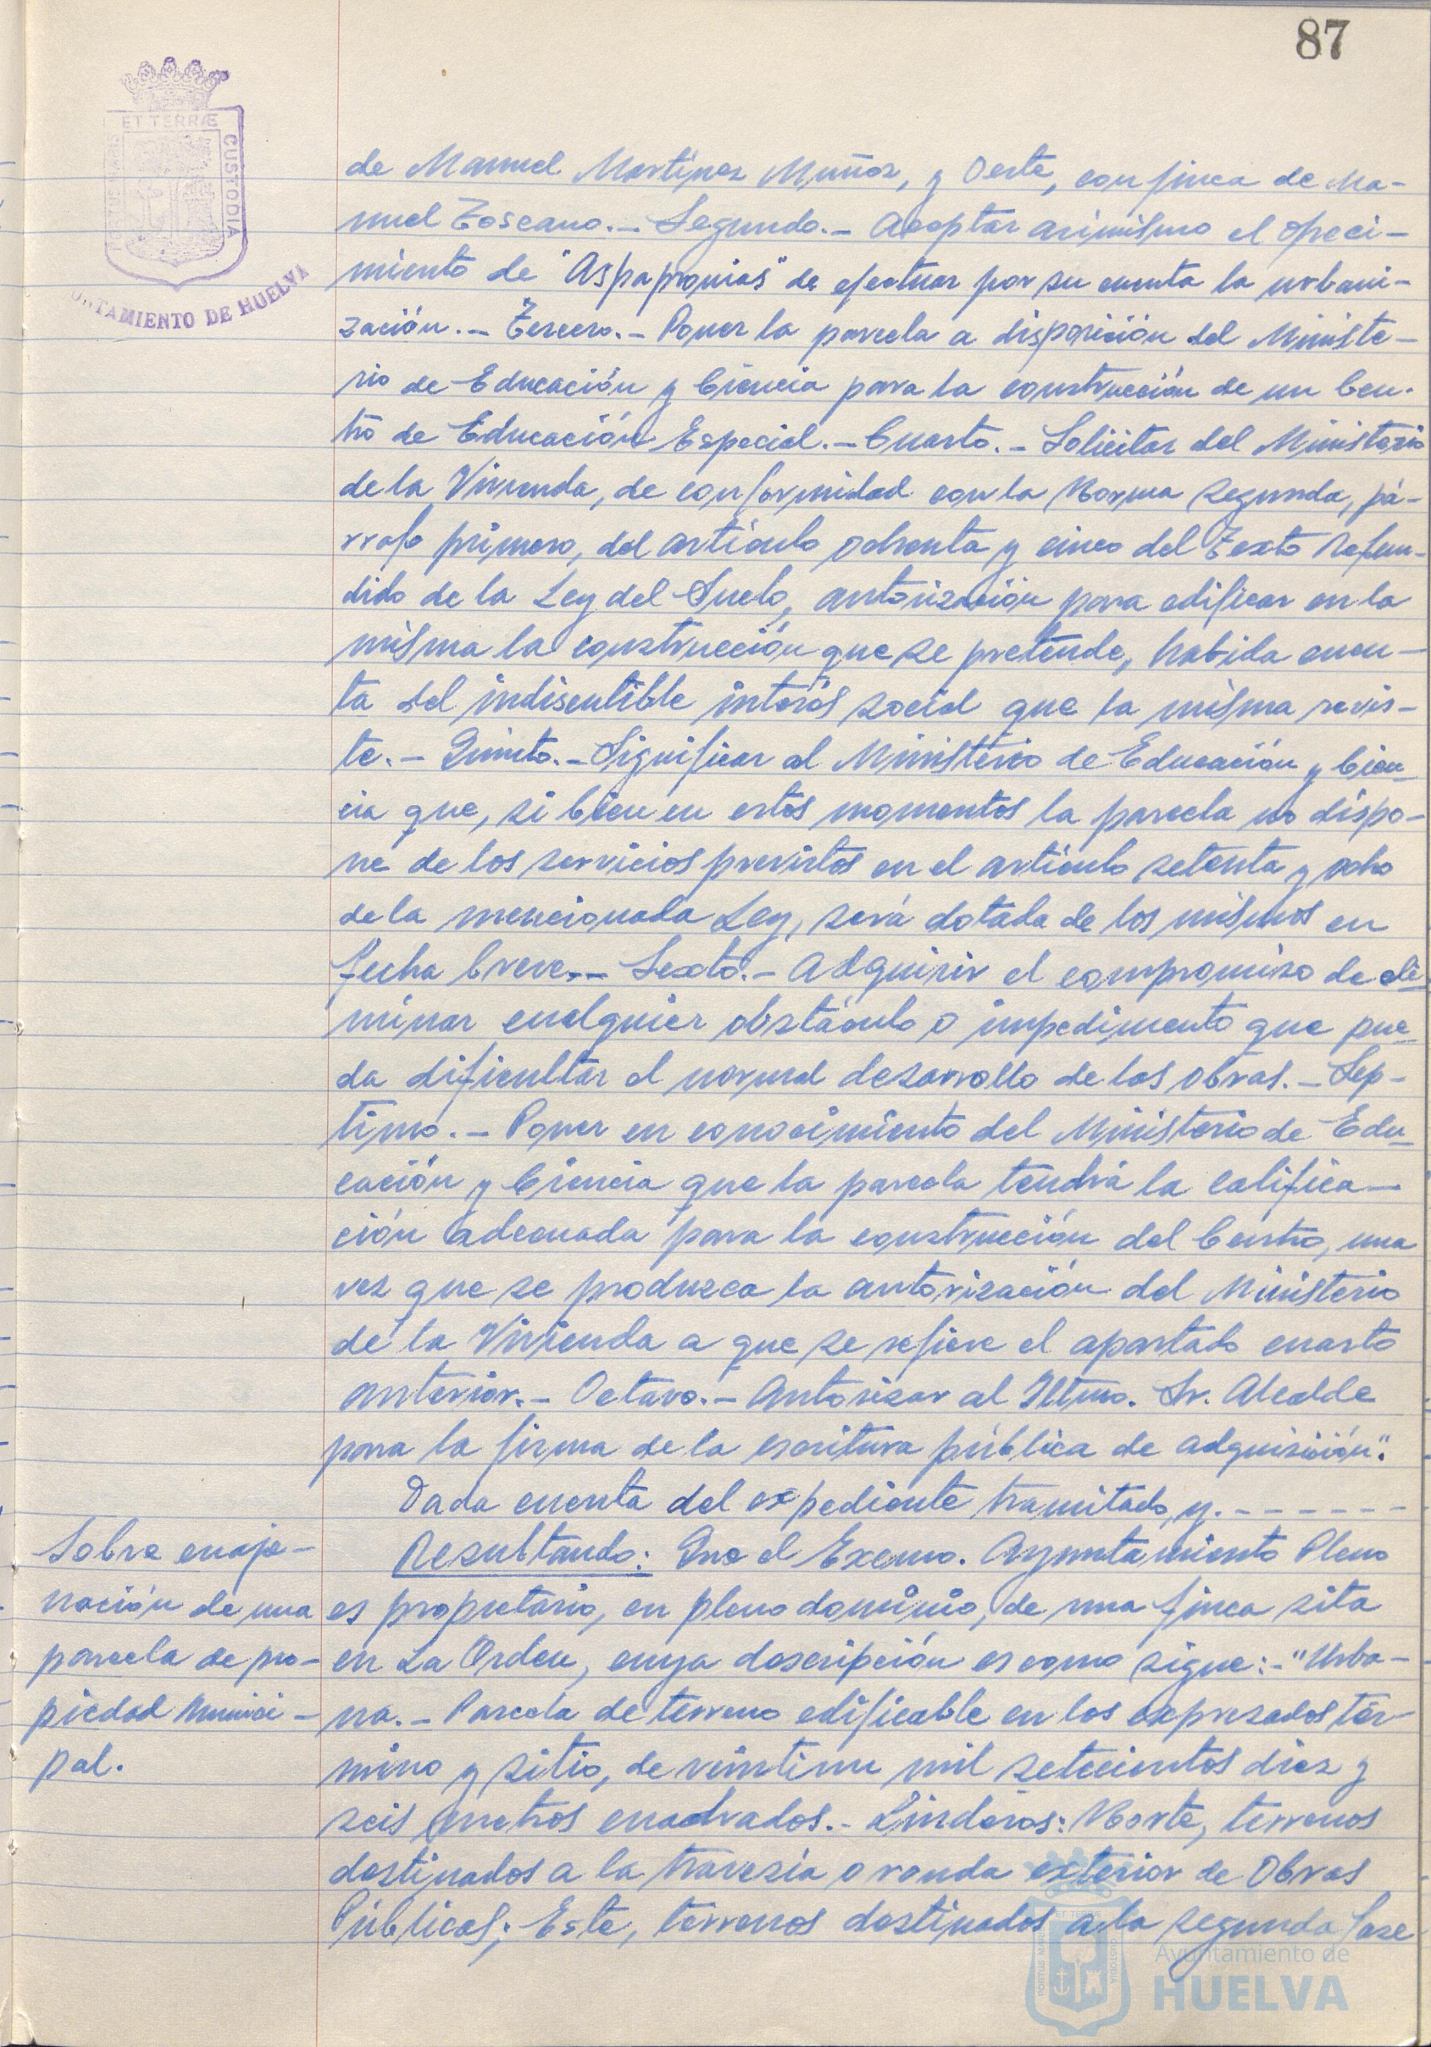 87
ET TERRÆ
CUSTODIA
TAMIENTO DE HUELVA
de Manuel Martínez Muñoz, y Oeste, con finca de Ma-
nuel Toscano.- Segundo.- Aceptar asimismo el ofreci-
miento de "Aspapronias" de efectuar por su cuenta la urbani-
zación.- Tercero.- Poner la parcela a disposición del Ministe-
rio de Educación y Ciencia para la construcción de un Cen-
tro de Educación Especial.- Cuarto.- Solicitar del Ministerio
de la Vivienda, de conformidad con la Norma segunda, pá-
rrafo primero, del artículo ochenta y cinco del Texto Refun-
dido de la Ley del Suelo, autorización para edificar en la
misma la construcción que se pretende, habida cuen-
ta del indiscutible interés social que la misma revis-
te.- Quinto.- Significar al Ministerio de Educación y Cien-
cia que, si bien en estos momentos la parcela no dispo-
ne de los servicios previstos en el artículo setenta y ocho
de la mencionada Ley, será dotada de los mismos en
fecha breve.- Sexto.- Adquirir el compromiso de eli-
minar cualquier obstáculo o impedimento que pue-
da dificultar el normal desarrollo de las obras.- Sép-
timo.- Poner en conocimiento del Ministerio de Edu-
cación y Ciencia que la parcela tendrá la califica-
ción adecuada para la construcción del Centro, una
vez que se produzca la autorización del Ministerio
de la Vivienda a que se refiere el apartado cuarto
anterior.- Octavo.- Autorizar al Iltmo. Sr. Alcalde
para la firma de la escritura pública de adquisición".
Dada cuenta del expediente tramitado, y.- - - - - - -
Sobre enaje-
nación de una
parcela de pro-
piedad Munici-
pal.
Resultando: Que el Excmo. Ayuntamiento Pleno
es propietario, en pleno dominio, de una finca sita
en La Orden, cuya descripción es como sigue:- "Urba-
na.- Parcela de terreno edificable en los expresados tér-
mino y sitio, de veintiun mil setecientos diez y
seis metros cuadrados.- Linderos: Norte, terrenos
destinados a la travesía o ronda exterior de Obras
Públicas; Este, terrenos destinados a la segunda fase
Ayuntamiento de
HUELVA